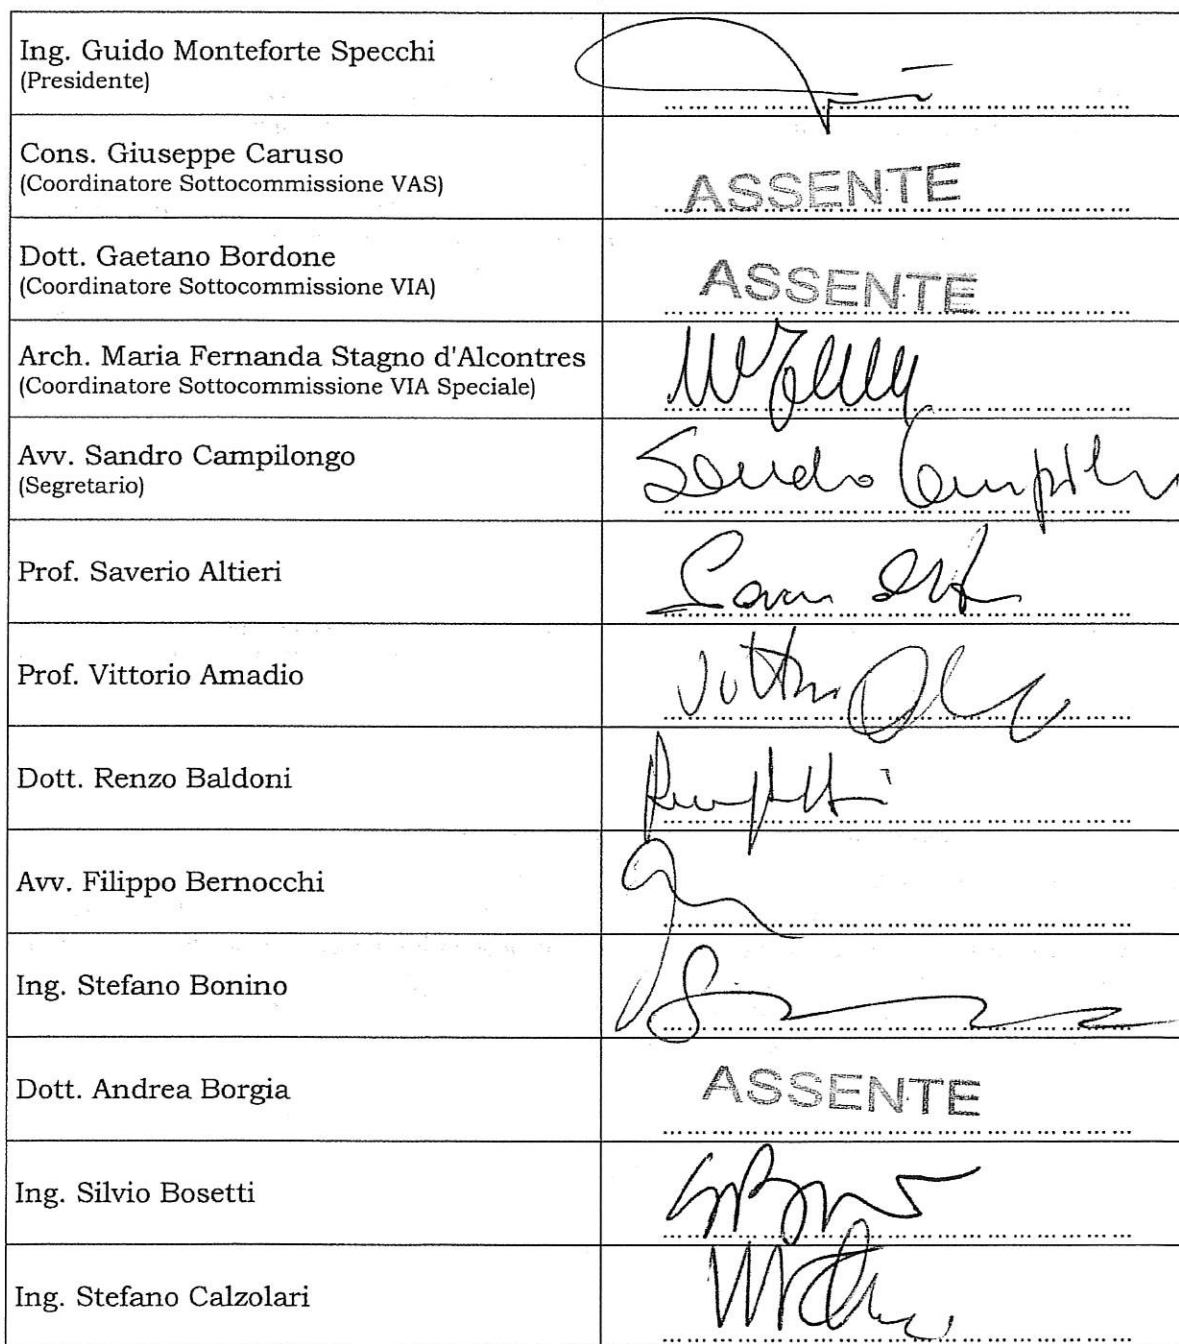 Ing. Guido Monteforte Specchi
(Presidente)
Cons. Giuseppe Caruso
(Coordinatore Sottocommissione VAS)
ASSENTE
Dott. Gaetano Bordone
(Coordinatore Sottocommissione VIA)
ASSENTE
Arch. Maria Fernanda Stagno d'Alcontres
(Coordinatore Sottocommissione VIA Speciale)
Avv. Sandro Campilongo
(Segretario)
Sandro
Prof. Saverio Altieri
Prof. Vittorio Amadio
Dott. Renzo Baldoni
Avv. Filippo Bernocchi
Ing. Stefano Bonino
Dott. Andrea Borgia
ASSENTE
Ing. Silvio Bosetti
Ing. Stefano Calzolari